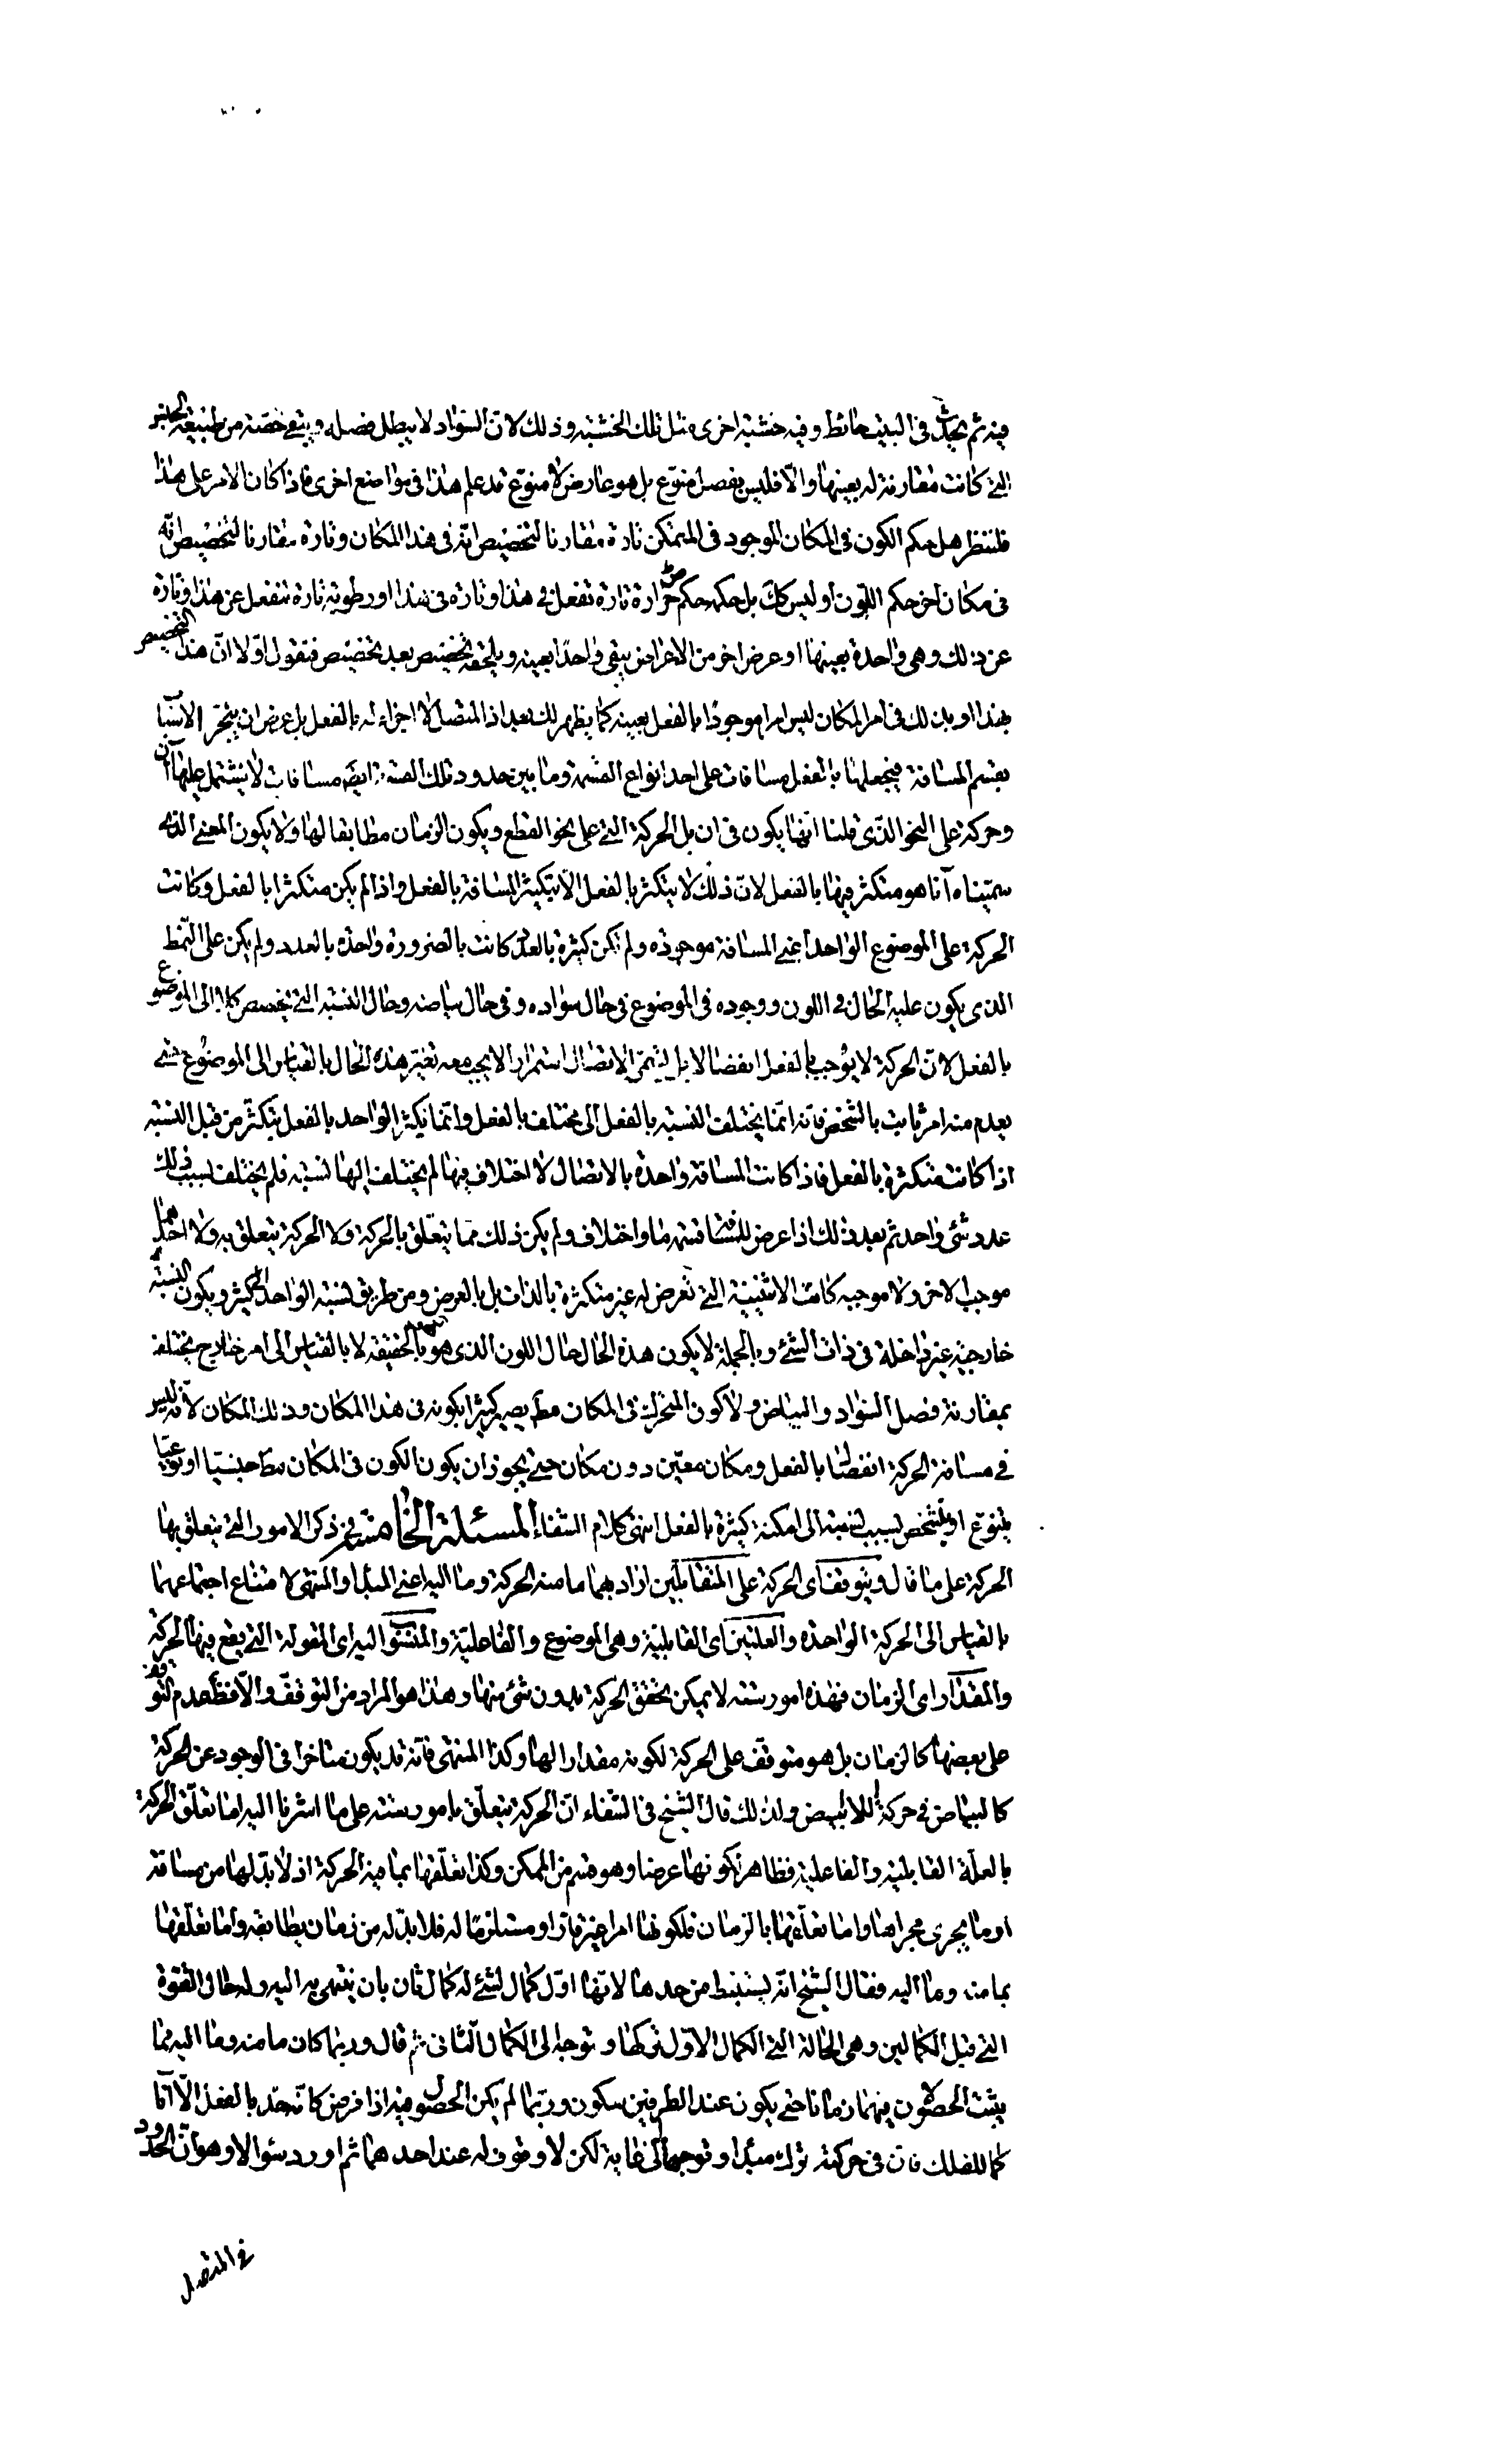 فيه ثم يحدث فى البيت حائط وفيه خشبة اخرى مثل تلك الخشبة وذلك لان السواد لا يبطل فصله ويبقى حصته من طبيعة الجنس
التى كانت مقارنة له بعينها والا فليس بفصل منوّع بل هو عارض لا منوّع قد علم هذا فى مواضع اخرى فاذا كان الامر على هذا
فلننظر هل حكم الكون فى المكان الموجود فى المتمكن تارة مقارنا لتخصيص انه فى هذا المكان وتارة مقارنا لتخصيص انّه
فى مكان اخر حكم اللون او ليس كك بل حكمه حكم حرارة تارة تفعل فى هذا وتارة فى هذا او رطوبة تارة تنفعل عن هذا وتارة
عن ذلك وهى واحدة بعينها او عرض اخر من الاعراض يبقى واحدا بعينه ويلحقه تخصيص بعد تخصيص فنقول اولا انّ هذا التخصيص
بهذا او بذلك فى امر المكان ليس امرا موجودًا بالفعل بعينه كما يظهر لك بعد اذ المتصل لا اجزاء له بالفعل بل عرض ان يتجزّ الاسباب
بقسم المسافة فيجعلها بالفعل مسافات على احد انواع القسمة وما بين حدود تلك القسمة ايضا مسافات لا يشتمل عليها آن
وحركة على النحو الذى قلنا انها يكون فى ان بل الحركة التى على نحو القطع ويكون الزمان مطابقا لها ولا يكون المعنى الذى
سميناه آنا هو متكثر فيها بالفعل لان ذلك لا يتكثر بالفعل الا بتكثير المسافة بالفعل واذا لم يكن متكثرا بالفعل وكانت
الحركة على الموضوع الواحد اعنى المسافة موجوده ولم تكن كثيرة بالعدد كانت بالضرورة واحدة بالعدد ولم يكن على النمط
الذى يكون عليه الحال فى اللون ووجوده فى الموضوع فى حال سواده وفى حال بياضه وحال النسبة التى تخصص كلا الى الموضوع
بالفعل لان الحركة لا يوجب بالفعل انفصالا بل يستمر الاتصال استمرارا لا يجب معه تغير هذه الحال بالقياس الى الموضوع حتى
يعدم منه امر ثابت بالشخص فانه انما يختلف النسبة بالفعل الى مختلف بالفعل وانما يكثر الواحد بالفعل بتكثر من قبل النسبة
اذا كانت متكثرة بالفعل فاذا كانت المسافة واحدة بالاتصال لا اختلاف فيها لم يختلف اليها نسبة فلم يختلف بسبب ذلك
عدد شئ واحد ثم بعد ذلك اذا عرض للمسافة قسمة ما واختلاف ولم يكن ذلك مما يتعلق بالحركة ولا الحركة يتعلق به ولا احدهما
موجب الاخر ولا موجبه كانت الاثنينية التى تعرض له غير متكثرة بالذات بل بالعرض ومن طريق نسبة الواحد الى كثير ويكون النسبة
خارجية غير داخلة فى ذات الشئ وبالجملة لا يكون هذه الحال حال اللون الذى هو بالحقيقة لا بالقياس الى امر خارج يختلف
بمقارنة فصل السواد والبياض ولا كون المتحرك فى المكان مط يصير كثيرا بكونه فى هذا المكان وذلك المكان لانه ليس
فى مسافة الحركة انفصال بالفعل ومكان معين دون مكان حتى يجوز ان يكون الكون فى المكان مط جنسيا او نوعيا
يتنوع او يتشخص بسبب نسبة الى امكنة كثيرة بالفعل انتهى كلام الشفاء المسئلة الخامسة فى ذكر الامور التى يتعلق بها
الحركة على ما قال ويتوقف اى الحركة على المتقابلين اراد بهما ما منه الحركة وما اليه اعنى المبدا والمنتهى لامتناع اجتماعهما
بالقياس الى الحركة الواحده والعلتين اى القابلية وهى الموضوع والفاعلية والمنسوب اليه اى المقولة التى يقع فيها الحركة
والمقدار اى الزمان فهذه امور ستة لا يمكن تحقق الحركة بدون شئ منها وهذا هو المراد من التوقف والا فظ عدم التوقف
على بعضها كالزمان بل هو متوقف على الحركة لكونه مقدارا لها وكذا المنتهى فانه قد يكون متاخرا فى الوجود عن الحركة
كالبياض فى حركة الابيض ولذلك قال الشيخ فى الشفاء ان الحركة يتعلق بامور ستة على ما اشرنا اليه اما تعلق الحركة
بالعلة القابلية والفاعلية فظاهر لكونها عرضا وهو قسم من الممكن وكذا تعلقها بما فيه الحركة اذ لا بد لها من مسافة
او ما يجرى مجراها واما تعلقها بالزمان فلكونها امرا غير قار او مستلزما له فلا بد له من زمان يطابقه واما تعلقها
بما منه وما اليه فقال الشيخ انه يستنبط من حدها لانها اول كمال لشئ له كمال ثان بان ينتهى به اليه وله حال القوة
التى قبل الكمالين وهى الحالة التى الكمال الاول تركها وتوجه الى الكمال الثانى ثم قال وربما كان ما منه وما اليه مما
يثبت الحصول فيهما زمانا حتى يكون عند الطرفين سكون وربما لم يكن الحصول فيه اذا فرض كانه حد بالفعل الا آنا
كما للفلك فان فى حركته ترك مبدا وتوجها الى غاية لكن لا وقوف له عند احدهما ثم اورد سؤالا وهو ان الحدود
فى المتصل